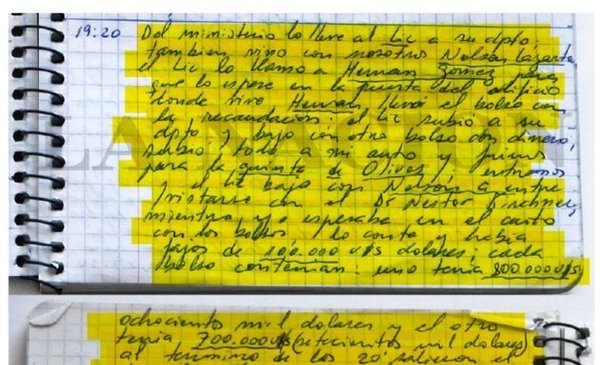 19:20 Del ministerio lo lleve al Lic a su dpto,
tambien vino con nosotros Nelson Lazarte,
el Lic lo llamo a Hernan Gomez para
que lo espere en la puerta del edificio
donde vive Hernan llevó el bolso con
la recaudación: el Lic subio a su
dpto y bajo con otro bolso con dinero,
subio todo a mi auto y fuimos
para la quinta de Olivos, entramos
y el Lic bajo con Nelson a entre
vistarse con el Dr Nestor Kirchner,
mientras yo esperaba en el auto
con los bolsos lo conte y habia
fajos de 100.000 U$S dolares; cada
bolso contenian: uno tenia 800.000U$S
LA NACION
ochocientos mil dolares y el otro
tenia 700.000U$S (setecientos mil dolares)
al termino de los 20' salieron el